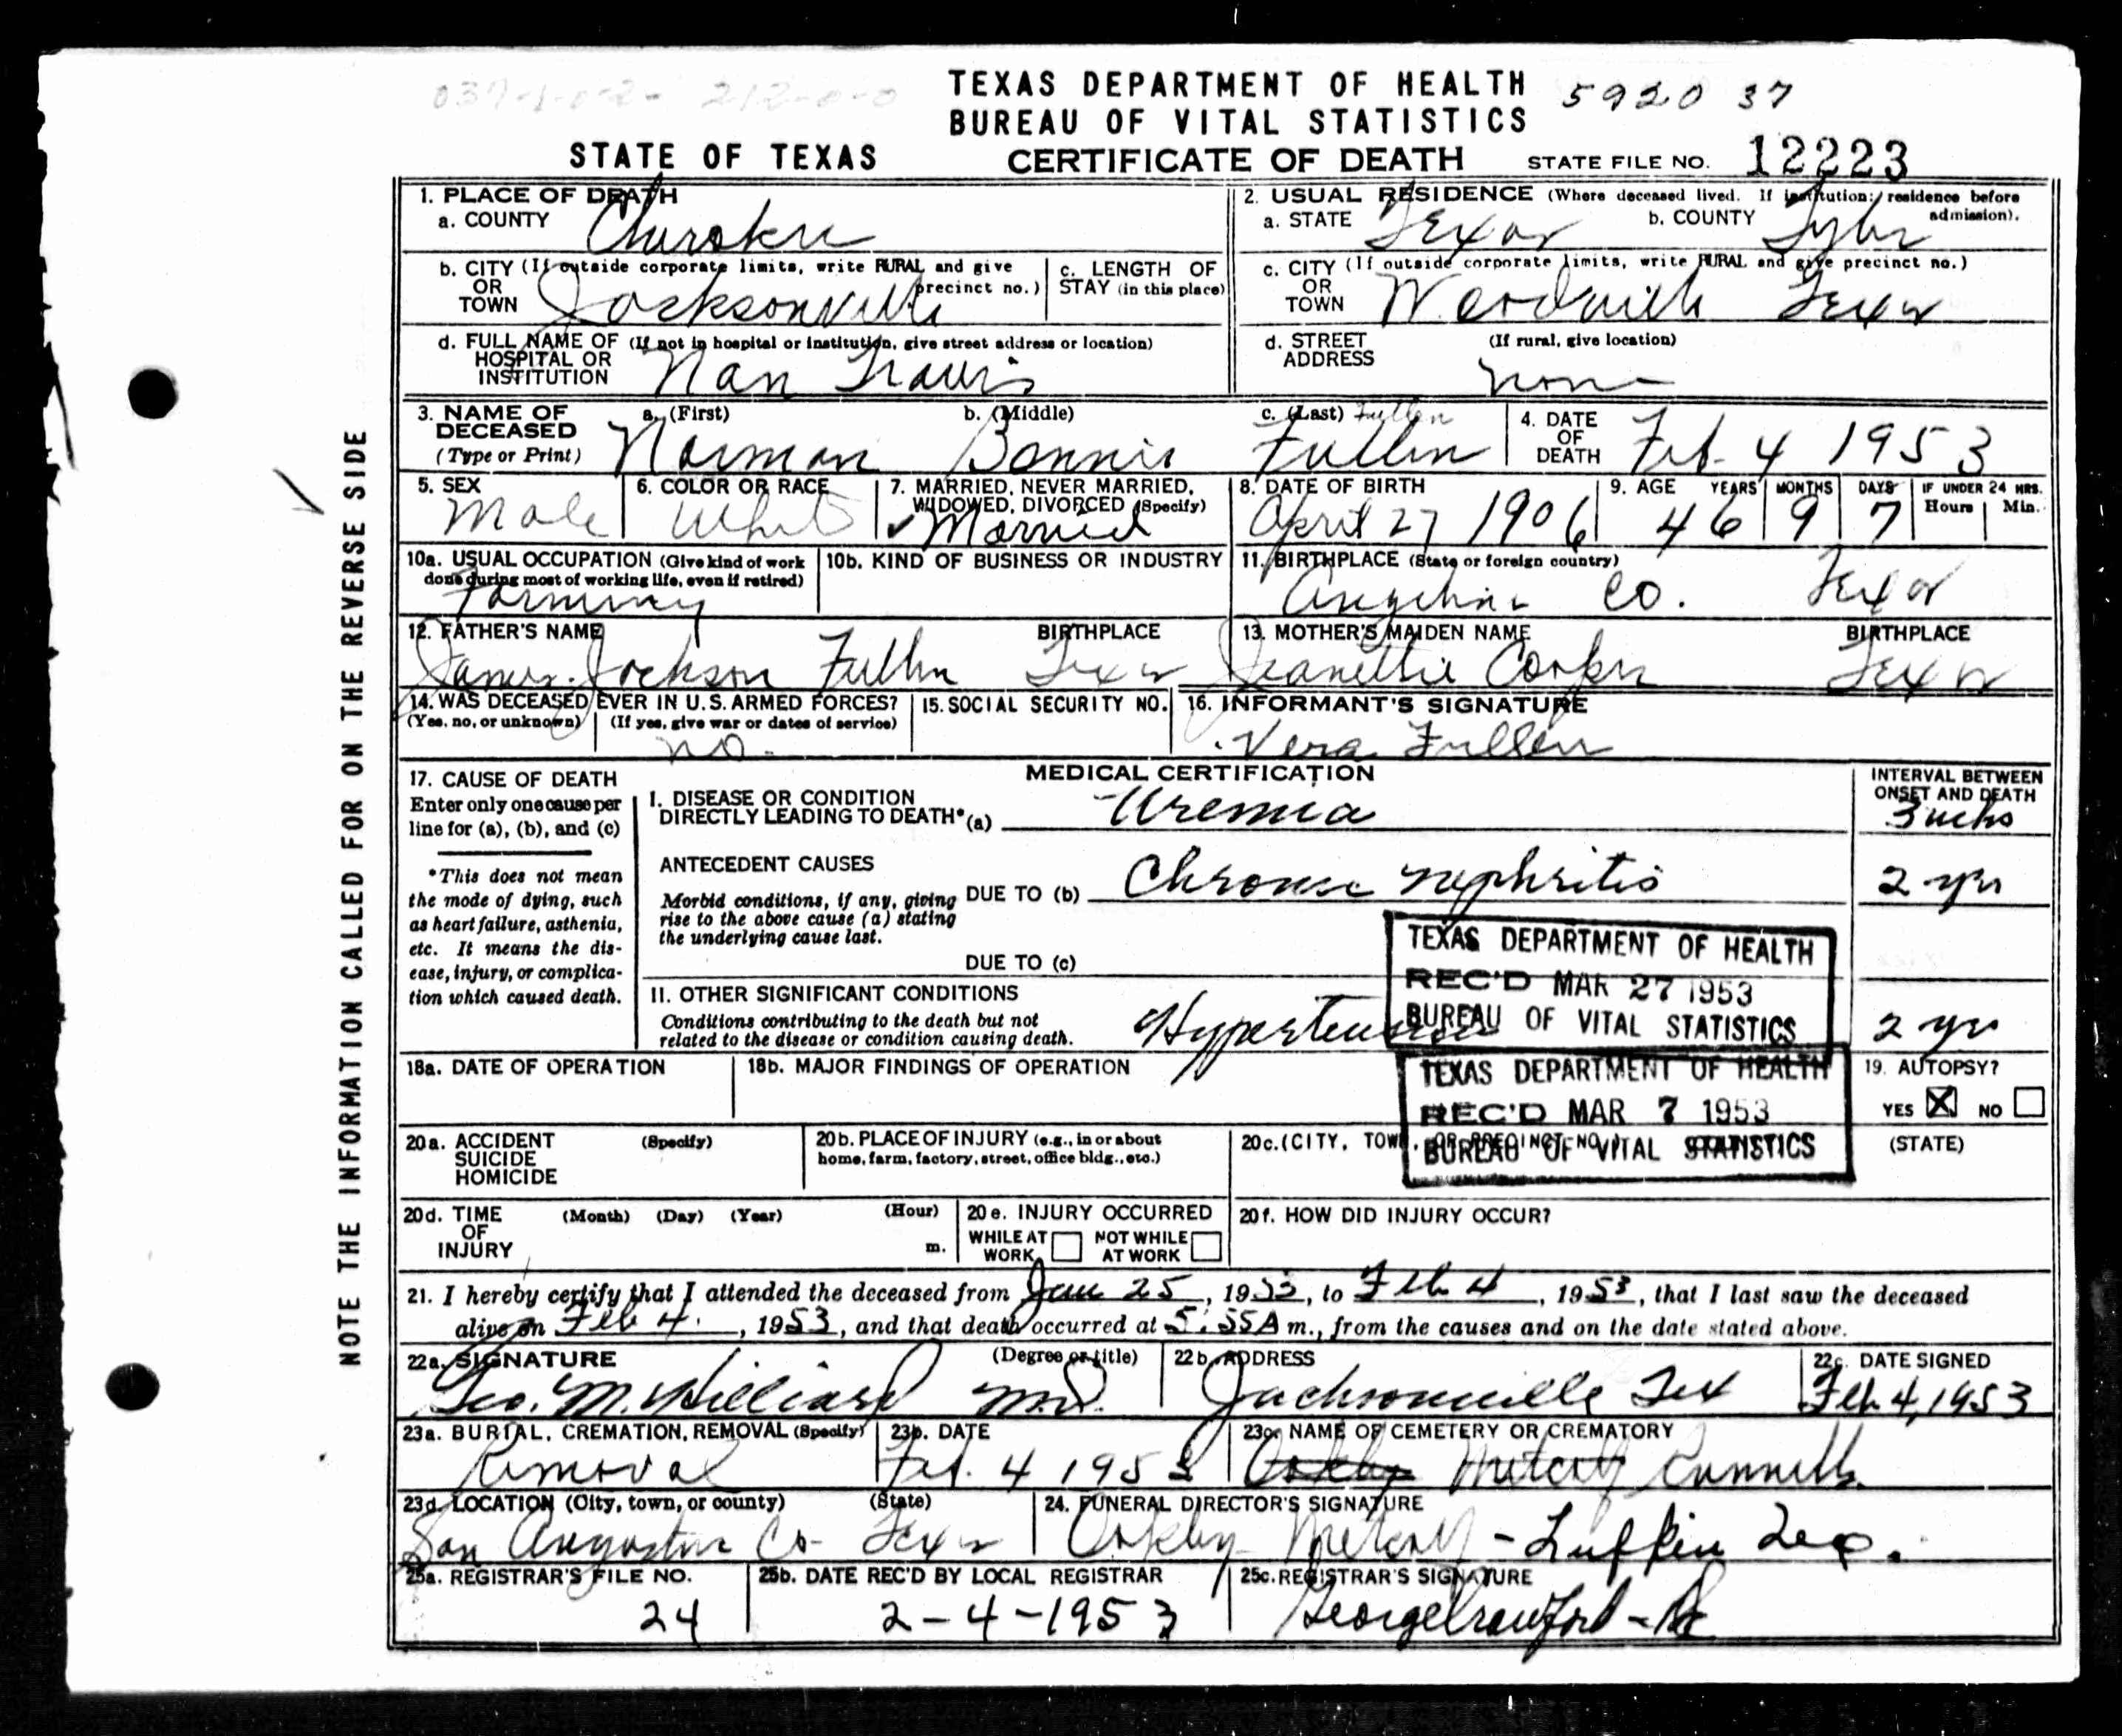 037-1-0-2- 212-0-0
TEXAS DEPARTMENT OF HEALTH 5920 37
BUREAU OF VITAL STATISTICS
STATE OF TEXAS CERTIFICATE OF DEATH STATE FILE NO. 12223
NOTE THE INFORMATION CALLED FOR ON THE REVERSE SIDE
1. PLACE OF DEATH
a. COUNTY Cherokee
2. USUAL RESIDENCE (Where deceased lived. If institution: residence before admission).
a. STATE Texas b. COUNTY Tyler
b. CITY (If outside corporate limits, write RURAL and give precinct no.)
OR
TOWN Jacksonville
c. LENGTH OF
STAY (in this place)
c. CITY (If outside corporate limits, write RURAL and give precinct no.)
OR
TOWN Woodville Texas
d. FULL NAME OF (If not in hospital or institution, give street address or location)
HOSPITAL OR
INSTITUTION Nan Travis
d. STREET (If rural, give location)
ADDRESS none
3. NAME OF a. (First) b. (Middle) c. (Last) Fullen
DECEASED Norman Bonnie Fullen
(Type or Print)
4. DATE
OF
DEATH Feb. 4 1953
5. SEX
Male
6. COLOR OR RACE
White
7. MARRIED, NEVER MARRIED,
WIDOWED, DIVORCED (Specify)
Married
8. DATE OF BIRTH
April 27 1906
9. AGE YEARS MONTHS DAYS IF UNDER 24 HRS.
Hours Min.
46 9 7
10a. USUAL OCCUPATION (Give kind of work
done during most of working life, even if retired)
Farming
10b. KIND OF BUSINESS OR INDUSTRY
11. BIRTHPLACE (State or foreign country)
Angelina Co. Texas
12. FATHER'S NAME BIRTHPLACE
James Jackson Fullen Texas
13. MOTHER'S MAIDEN NAME BIRTHPLACE
Jeanettie Texas
14. WAS DECEASED EVER IN U.S. ARMED FORCES?
(Yes, no, or unknown) (If yes, give war or dates of service)
no
15. SOCIAL SECURITY NO.
16. INFORMANT'S SIGNATURE
Vera Fullen
17. CAUSE OF DEATH
Enter only one cause per
line for (a), (b), and (c)
*This does not mean
the mode of dying, such
as heart failure, asthenia,
etc. It means the dis-
ease, injury, or complica-
tion which caused death.
MEDICAL CERTIFICATION
INTERVAL BETWEEN
ONSET AND DEATH
I. DISEASE OR CONDITION
DIRECTLY LEADING TO DEATH* (a) Uremia 3 wks
ANTECEDENT CAUSES
Morbid conditions, if any, giving
rise to the above cause (a) stating
the underlying cause last.
DUE TO (b) Chronic nephritis 2 yrs
DUE TO (c)
II. OTHER SIGNIFICANT CONDITIONS
Conditions contributing to the death but not
related to the disease or condition causing death.
Hypertension 2 yrs
TEXAS DEPARTMENT OF HEALTH
REC'D MAR 27 1953
BUREAU OF VITAL STATISTICS
TEXAS DEPARTMENT OF HEALTH
REC'D MAR 7 1953
BUREAU OF VITAL STATISTICS
18a. DATE OF OPERATION
18b. MAJOR FINDINGS OF OPERATION
19. AUTOPSY?
YES X NO
20a. ACCIDENT (Specify)
SUICIDE
HOMICIDE
20b. PLACE OF INJURY (e.g., in or about
home, farm, factory, street, office bldg., etc.)
20c. (CITY, TOWN, OR PRECINCT NO.) (STATE)
20d. TIME (Month) (Day) (Year) (Hour)
OF
INJURY m.
20e. INJURY OCCURRED
WHILE AT WORK NOT WHILE AT WORK
20f. HOW DID INJURY OCCUR?
21. I hereby certify that I attended the deceased from Jan 25, 1953, to Feb 4, 1953, that I last saw the deceased
alive on Feb 4, 1953, and that death occurred at 5:55A m., from the causes and on the date stated above.
22a. SIGNATURE (Degree or title)
Geo. M. Hilliard M.D.
22b. ADDRESS
Jacksonville Tex
22c. DATE SIGNED
Feb 4, 1953
23a. BURIAL, CREMATION, REMOVAL (Specify)
Removal
23b. DATE
Feb. 4 1953
23c. NAME OF CEMETERY OR CREMATORY
Oakley Metcalf
23d. LOCATION (City, town, or county) (State)
San Augustine Co Texas
24. FUNERAL DIRECTOR'S SIGNATURE
Oakley Metcalf - Lufkin Tex.
25a. REGISTRAR'S FILE NO.
24
25b. DATE REC'D BY LOCAL REGISTRAR
2-4-1953
25c. REGISTRAR'S SIGNATURE
George Crawford